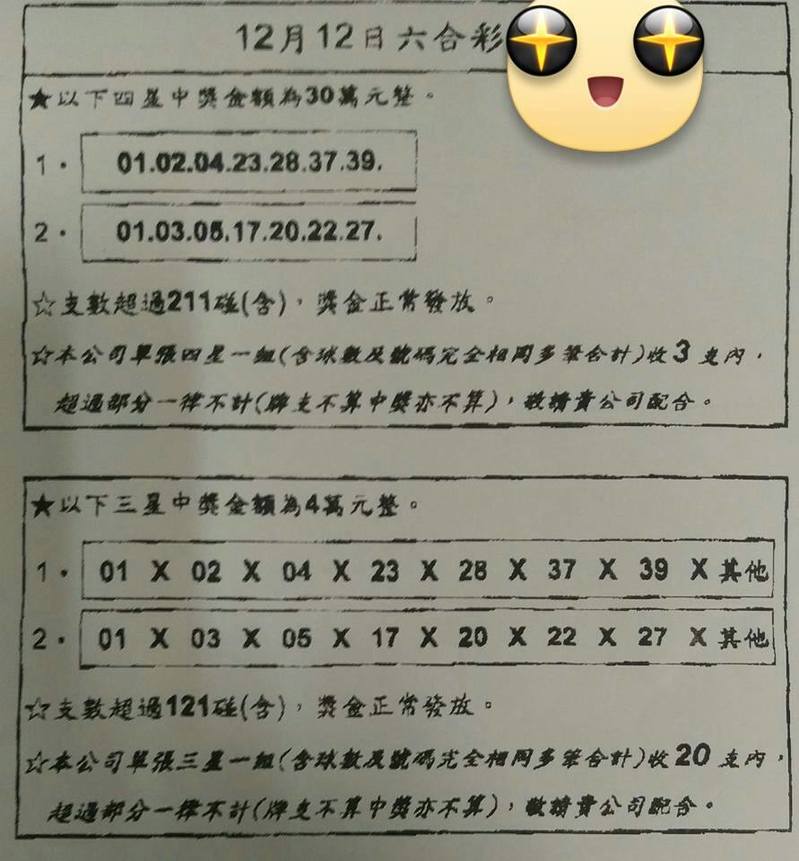 12月12日六合彩
★以下四星中獎金額為30萬元整。
1. 01.02.04.23.28.37.39.
2. 01.03.05.17.20.22.27.
☆支數超過211碰(含)，獎金正常發放。
☆本公司單張四星一組(含球數及號碼完全相同多筆合計)收3支內，
超過部分一律不計(牌支不算中獎亦不算)，敬請貴公司配合。
★以下三星中獎金額為4萬元整。
1. 01 X 02 X 04 X 23 X 28 X 37 X 39 X 其他
2. 01 X 03 X 05 X 17 X 20 X 22 X 27 X 其他
☆支數超過121碰(含)，獎金正常發放。
☆本公司單張三星一組(含球數及號碼完全相同多筆合計)收20支內，
超過部分一律不計(牌支不算中獎亦不算)，敬請貴公司配合。